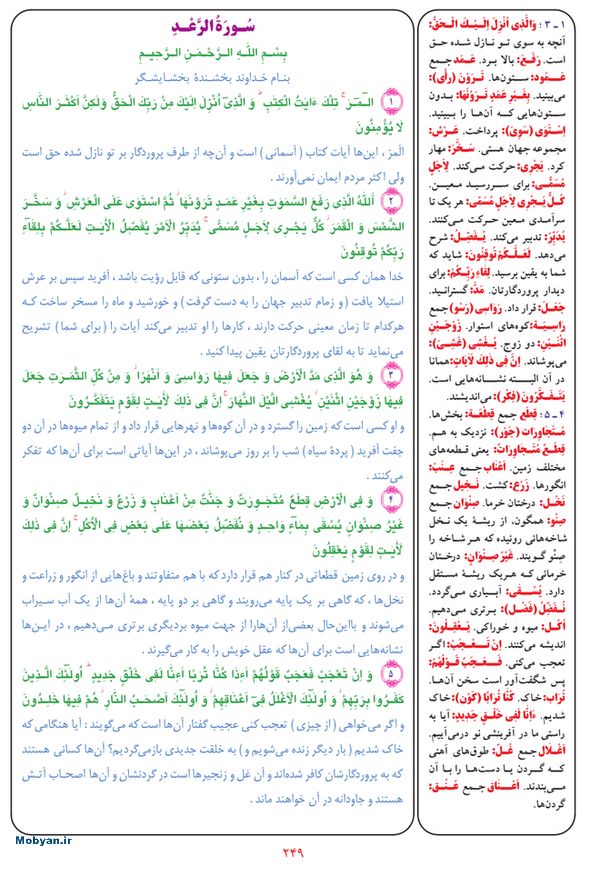 سُورَةُ الرَّعْدِ
بِسْمِ اللَّهِ الرَّحْمَنِ الرَّحِیمِ
بنـام خداوند بخشندهٔ بخشایشگر
۱ الـٓمٓرٰ ۚ تِلْکَ ءَایَٰتُ الْکِتَٰبِ ۗ وَ الَّذِیٓ أُنْزِلَ إِلَیْکَ مِنْ رَبِّکَ الْحَقُّ وَلَٰکِنَّ أَکْثَرَ النَّاسِ
لَا یُؤْمِنُونَ
المَرَ ، این‌ها آیات کتاب ( آسمانی ) است و آن‌چه از طرف پروردگار بر تو نازل شده حق است
ولی اکثر مردم ایمان نمی‌آورند .
۲ اَللَّهُ الَّذِی رَفَعَ السَّمَٰوَٰتِ بِغَیْرِ عَمَدٍ تَرَوْنَهَا ۖ ثُمَّ اسْتَوَىٰ عَلَى الْعَرْشِ ۖ وَ سَخَّرَ
الشَّمْسَ وَ الْقَمَرَ ۖ کُلٌّ یَجْرِی لِأَجَلٍ مُسَمًّى ۚ یُدَبِّرُ الْأَمْرَ یُفَصِّلُ الْأَیَٰتِ لَعَلَّکُمْ بِلِقَآءِ
رَبِّکُمْ تُوقِنُونَ
خدا همان کسی است که آسمان را ، بدون ستونی که قابل رؤیت باشد ، آفرید سپس بر عرش
استیلا یافت ( و زمام تدبیر جهان را به دست گرفت ) و خورشید و ماه را مسخر ساخت کـه
هرکدام تا زمان معینی حرکت دارند ، کارها را او تدبیر می‌کند آیات را ( برای شما ) تشریح
می‌نماید تا به لقای پروردگارتان یقین پیدا کنید .
۳ وَ هُوَ الَّذِی مَدَّ الْأَرْضَ وَ جَعَلَ فِیهَا رَوَاسِیَ وَ أَنْهَٰرًا ۖ وَ مِنْ کُلِّ الثَّمَرَٰتِ جَعَلَ
فِیهَا زَوْجَیْنِ اثْنَیْنِ ۖ یُغْشِی الَّیْلَ النَّهَارَ ۚ إِنَّ فِی ذَٰلِکَ لَأَیَٰتٍ لِقَوْمٍ یَتَفَکَّرُونَ
و او کسی است که زمین را گسترد و در آن کوه‌ها و نهرهایی قرار داد و از تمام میوه‌ها در آن دو
جفت آفرید ( پردهٔ سیاه ) شب را بر روز می‌پوشاند ، در این‌ها آیاتی است برای آن‌ها که تفکر
می‌کنند .
۴ وَ فِی الْأَرْضِ قِطَعٌ مُتَجَٰوِرَٰتٌ وَ جَنَّٰتٌ مِنْ أَعْنَابٍ وَ زَرْعٌ وَ نَخِیلٌ صِنْوَانٌ وَ
غَیْرُ صِنْوَانٍ یُسْقَىٰ بِمَآءٍ وَاحِدٍ وَ نُفَضِّلُ بَعْضَهَا عَلَىٰ بَعْضٍ فِی الْأُکُلِ ۚ إِنَّ فِی ذَٰلِکَ
لَأَیَٰتٍ لِقَوْمٍ یَعْقِلُونَ
و در روی زمین قطعاتی در کنار هم قرار دارد که با هم متفاوتند و باغ‌هایی از انگور و زراعت و
نخل‌ها ، که گاهی بر یک پایه می‌رویند و گاهی بر دو پایه ، همهٔ آن‌ها از یک آب سیراب
می‌شوند و بااین‌حال بعضی‌از آن‌هارا از جهت میوه بردیگری برتری می‌دهیم ، در این‌ها
نشانه‌هایی است برای آن‌ها که عقل خویش را به کار می‌گیرند .
۵ وَ إِنْ تَعْجَبْ فَعَجَبٌ قَوْلُهُمْ أَءِذَا کُنَّا تُرَٰبًا أَءِنَّا لَفِی خَلْقٍ جَدِیدٍ ۗ أُولَٰٓئِکَ الَّذِینَ
کَفَرُوا بِرَبِّهِمْ ۖ وَ أُولَٰٓئِکَ الْأَغْلَٰلُ فِیٓ أَعْنَاقِهِمْ ۖ وَ أُولَٰٓئِکَ أَصْحَٰبُ النَّارِ ۖ هُمْ فِیهَا خَٰلِدُونَ
و اگر می‌خواهی ( از چیزی ) تعجب کنی عجیب گفتار آن‌ها است که می‌گویند : آیا هنگامی که
خاک شدیم ( بار دیگر زنده می‌شویم و ) به خلقت جدیدی بازمی‌گردیم؟ آن‌ها کسانی هستند
که به پروردگارشان کافر شده‌اند و آن غل و زنجیرها است در گردنشان و آن‌ها اصحاب آتش
هستند و جاودانه در آن خواهند ماند .
۱ - ۳ : وَالَّذِی أُنْزِلَ إِلَیْکَ الْحَقُّ:
آنچه به سوی تو نازل شده حق
است. رَفَعَ: بالا برد. عَمَد جمع
عَمُود: ستون‌ها. تَرَوْنَ (رأی):
می‌بینید. بِغَیرِ عَمَدٍ تَرَوْنَهَا: بدون
ستون‌هایی که آن‌ها را ببینید.
اِسْتَوَی (سَوِیَ): پرداخت. عَرْش:
مجموعه جهان هستی. سَخَّرَ: مهار
کرد. یَجْرِی: حرکت می‌کند. لِأَجَلٍ
مُسَمًّی: برای سررسید معین.
کُلٌّ یَجْرِی لِأَجَلٍ مُسَمًّی: هر یک تا
سرآمدی معین حرکت می‌کنند.
یُدَبِّرُ: تدبیر می‌کند. یُفَصِّلُ: شرح
می‌دهد. لَعَلَّکُمْ تُوقِنُونَ: شاید که
شما به یقین برسید. لِقَاءِ رَبِّکُمْ: برای
دیدار پروردگارتان. مَدَّ: گسترانید.
جَعَلَ: قرار داد. رَوَاسِیَ (رَسَوَ) جمع
رَاسِیَة: کوه‌های استوار. زَوْجَیْنِ
اثْنَیْنِ: دو زوج. یُغْشِی (غَشِیَ):
می‌پوشاند. إِنَّ فِی ذَلِکَ لَآیَاتٍ: همانا
در آن البسته نشانه‌هایی است.
یَتَفَکَّرُونَ (فِکر): می‌اندیشند.
۴ - ۵ : قِطَع جمع قِطْعَة: بخش‌ها.
مُتَجَاوِرَات (جَوَرَ): نزدیک به هم.
قِطَعٌ مُتَجَاوِرَاتٌ: یعنی قطعه‌های
مختلف زمین. أَعْنَاب جمع عِنَب:
انگورها. زَرْع: کشت. نَخِیل جمع
نَخْل: درختان خرما. صِنْوَان جمع
صِنْو: همگون، از ریشهٔ یک نخل
شاخه‌هائی روئیده که هر شاخه را
صِنْو گویند. غَیْرُ صِنْوَانٍ: درختان
خرمائی که هریک ریشهٔ مستقل
دارد. یُسْقَی: آبیاری می‌گردد.
نُفَضِّلُ (فَضَلَ): برتری می‌دهیم.
أُکُل: میوه و خوراکی. یَعْقِلُونَ:
اندیشه می‌کنند. تَعْجَبْ: اگر
تعجب می‌کنی. فَعَجَبٌ قَوْلُهُمْ:
پس شگفت‌آور است سخن آن‌ها.
تُرَاب: خاک. کُنَّا تُرَابًا (کَوَنَ): خاک
شدیم. ءَإِنَّا لَفِی خَلْقٍ جَدِیدٍ: آیا به
راستی ما در آفرینشی نو درمی‌آییم.
أَغْلَال جمع غُلّ: طوق‌های آهنی
که گردن یا دست‌ها را با آن
می‌بندند. أَعْنَاق جمع عُنُق:
گردن‌ها.
Mobyan.ir
۲۴۹